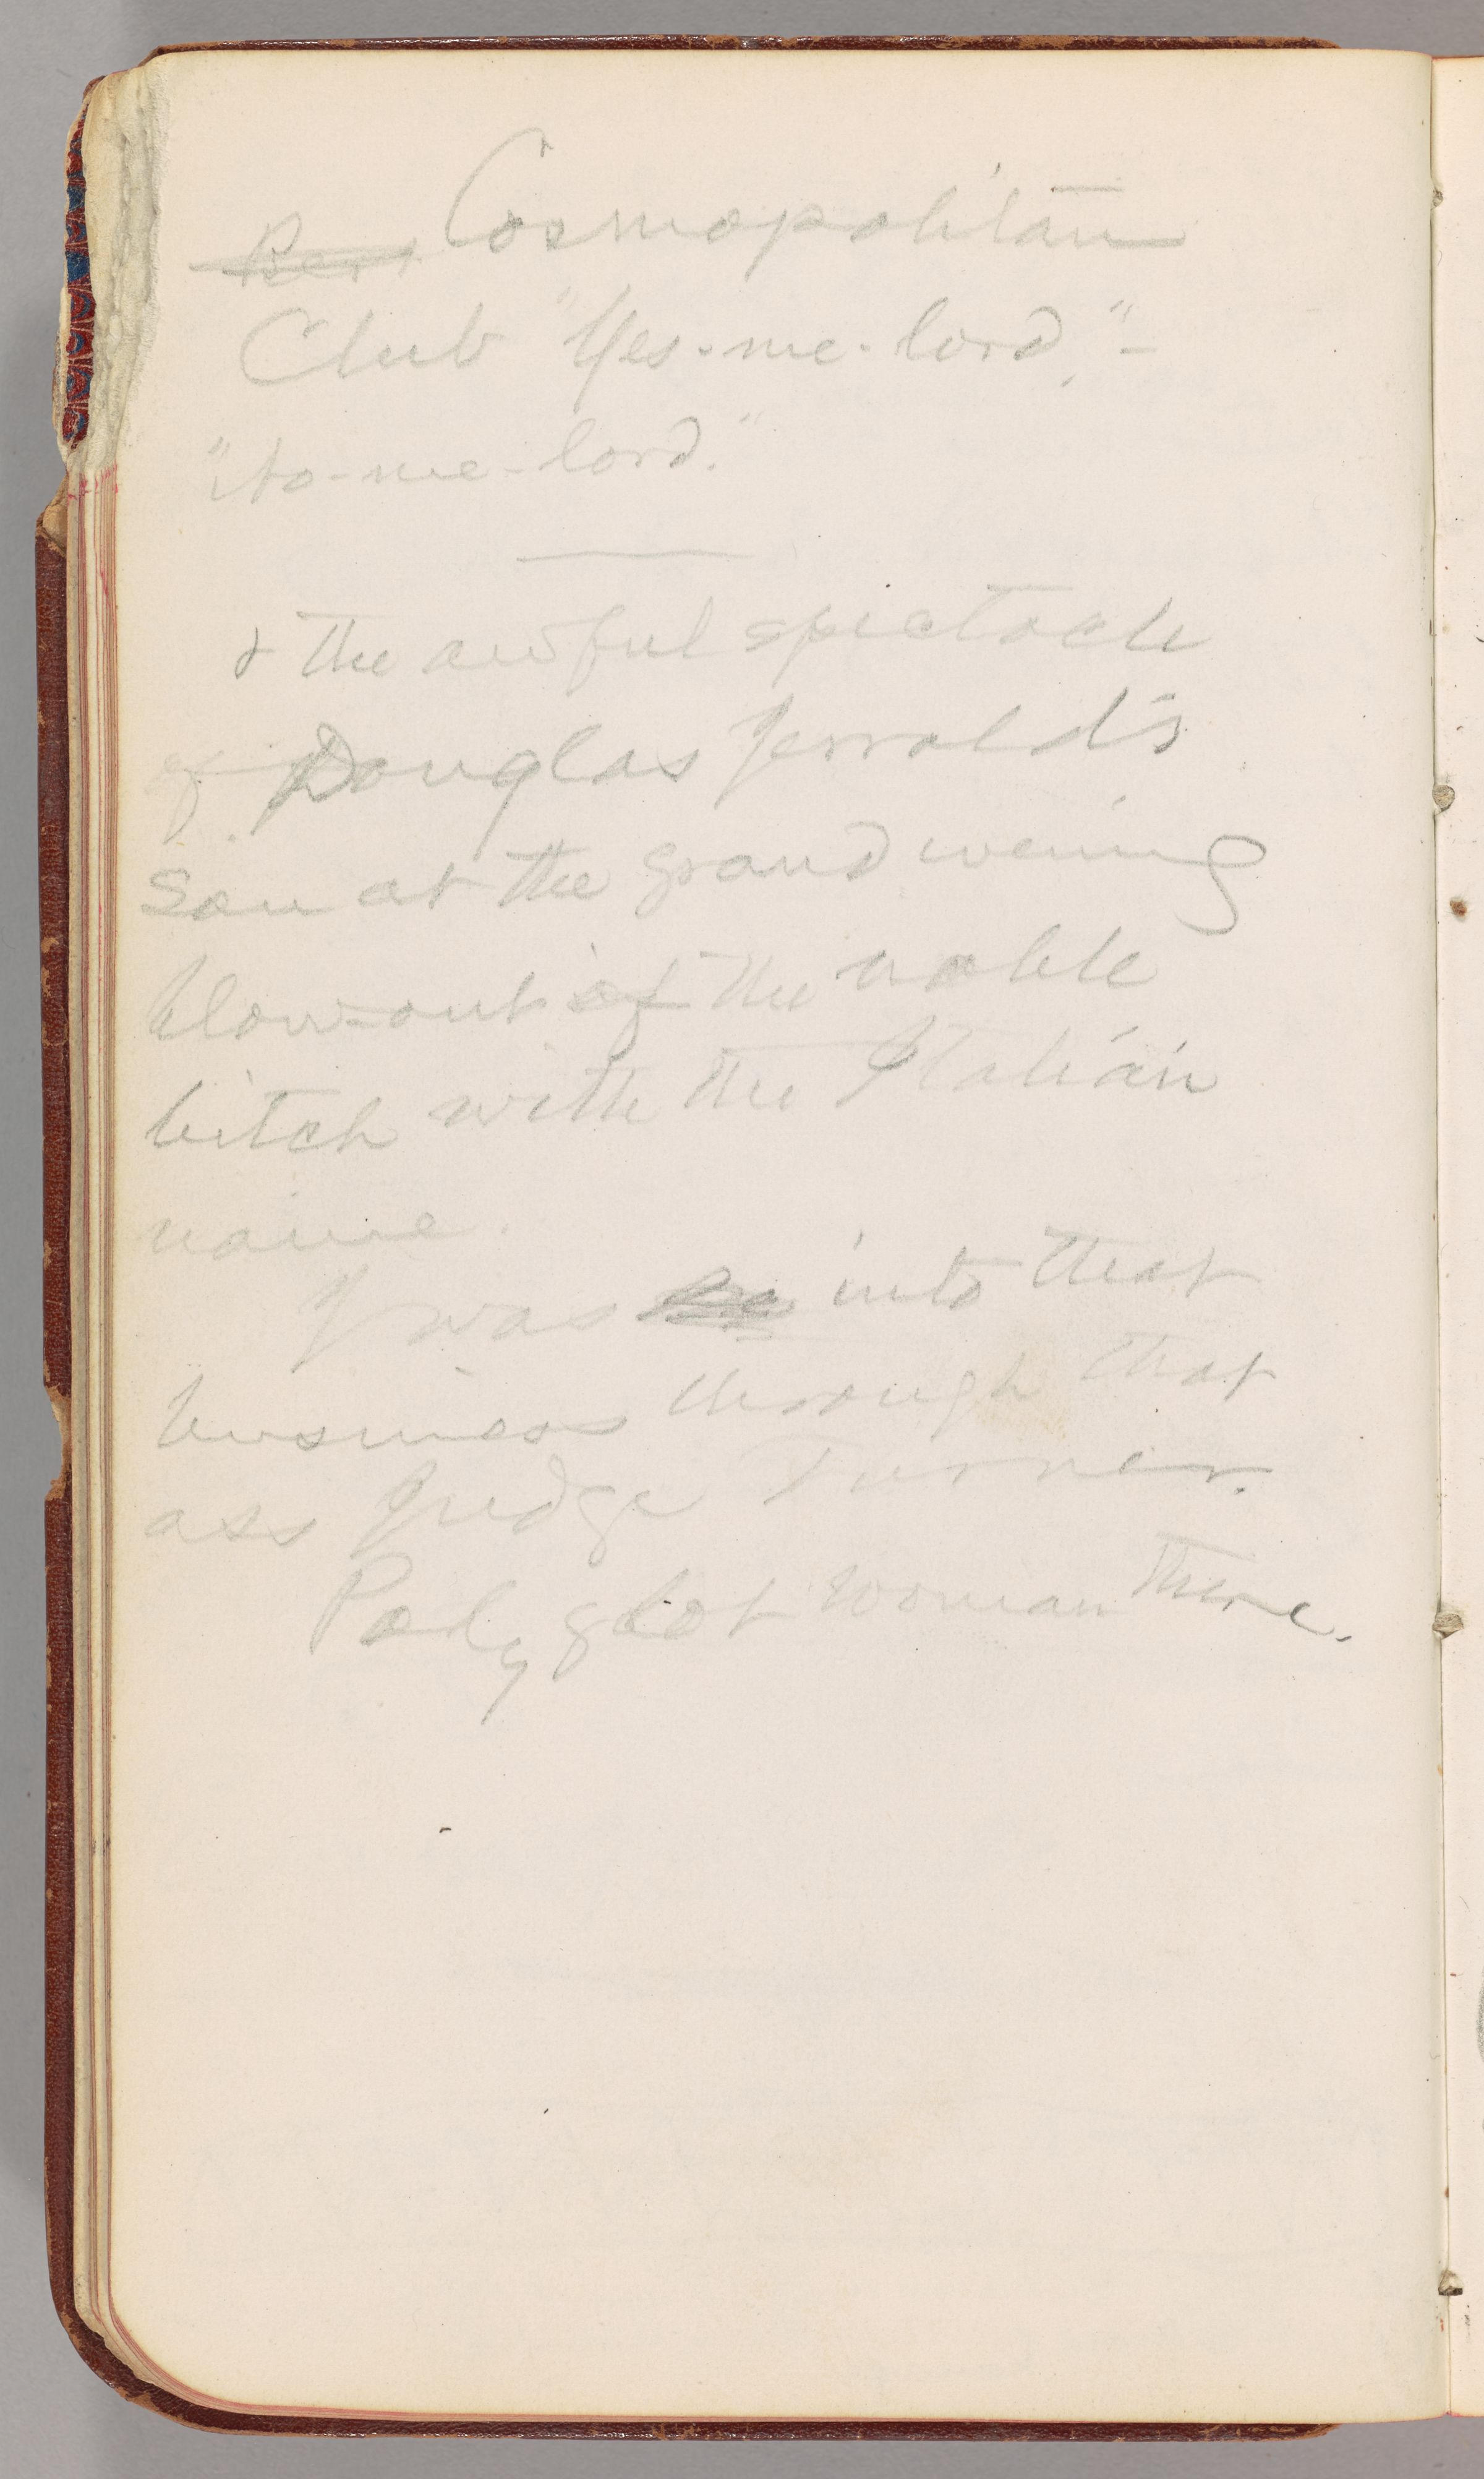 Cosmopolitan
Club "Yes-me-lord,"-
"No-me-lord."
& the awful spectacle
of Douglas Jerrold's
son at the grand evening
blow-out of the noble
bitch with the Italian
name.
I was into that
business through that
ass Judge Turner.
Polyglot woman there.